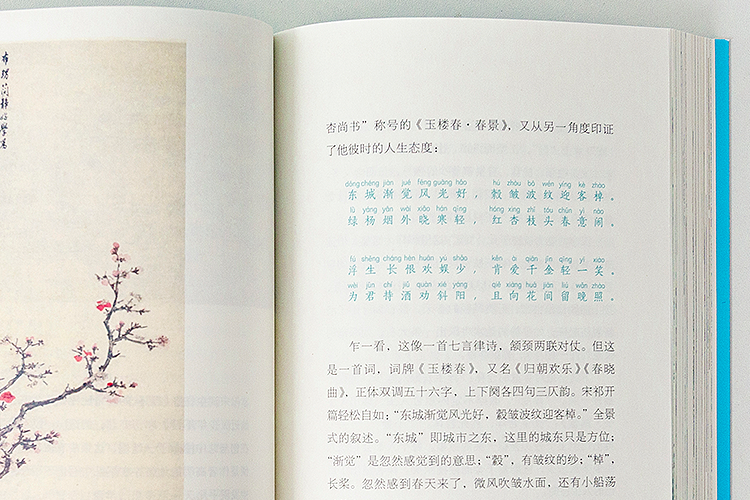 杏尚书”称号的《玉楼春·春景》，又从另一角度印证
了他彼时的人生态度：
dōng chéng jiàn jué fēng guāng hǎo hú zhòu bō wén yíng kè zhào
东城渐觉风光好，縠皱波纹迎客棹。
lǜ yáng yān wài xiǎo hán qīng hóng xìng zhī tóu chūn yì nào
绿杨烟外晓寒轻，红杏枝头春意闹。
fú shēng cháng hèn huān yú shǎo kěn ài qiān jīn qīng yí xiào
浮生长恨欢娱少，肯爱千金轻一笑。
wèi jūn chí jiǔ quàn xié yáng qiě xiàng huā jiān liú wǎn zhào
为君持酒劝斜阳，且向花间留晚照。
乍一看，这像一首七言律诗，颔颈两联对仗。但这
是一首词，词牌《玉楼春》，又名《归朝欢乐》《春晓
曲》，正体双调五十六字，上下阕各四句三仄韵。宋祁开
篇轻松自如：“东城渐觉风光好，縠皱波纹迎客棹。”全景
式的叙述。“东城”即城市之东，这里的城东只是方位；
“渐觉”是忽然感觉到的意思；“縠”，有皱纹的纱；“棹”，
长桨。忽然感到春天来了，微风吹皱水面，还有小船荡